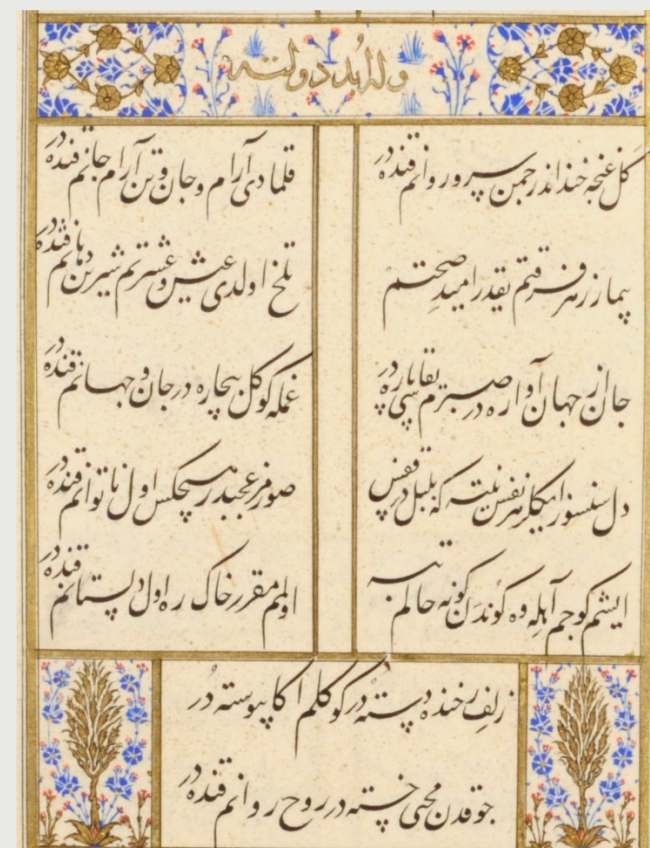 وله اُبد دولته
گل غنجه خنداندر چمن سرو روانم قنده در قلمادی آرام و جان و تن آرام جانم قنده در
بیمار زهر فرقتم یقدر امید صحتم تلخ اولدی عیش و عشرتم شیرین دهانم قنده در
جان از جهان آواره در صبرم یقاسی پاره در غمله کوکل بیچاره در جان و جهانم قنده در
دل سنسوز ایکلر هر نفس نیته که بلبل در قفس صورمز عجبدر هیچکس اول ناتوانم قنده در
ایشم کوجم آهله وه کوُندن کونه حالم تبه اولم مقرر خاک ره اول دلستانم قنده در
زلف رخنده دسته در کوکلم اکا پیوسته دُر
جوقدن محبی خسته در روح روانم قنده در